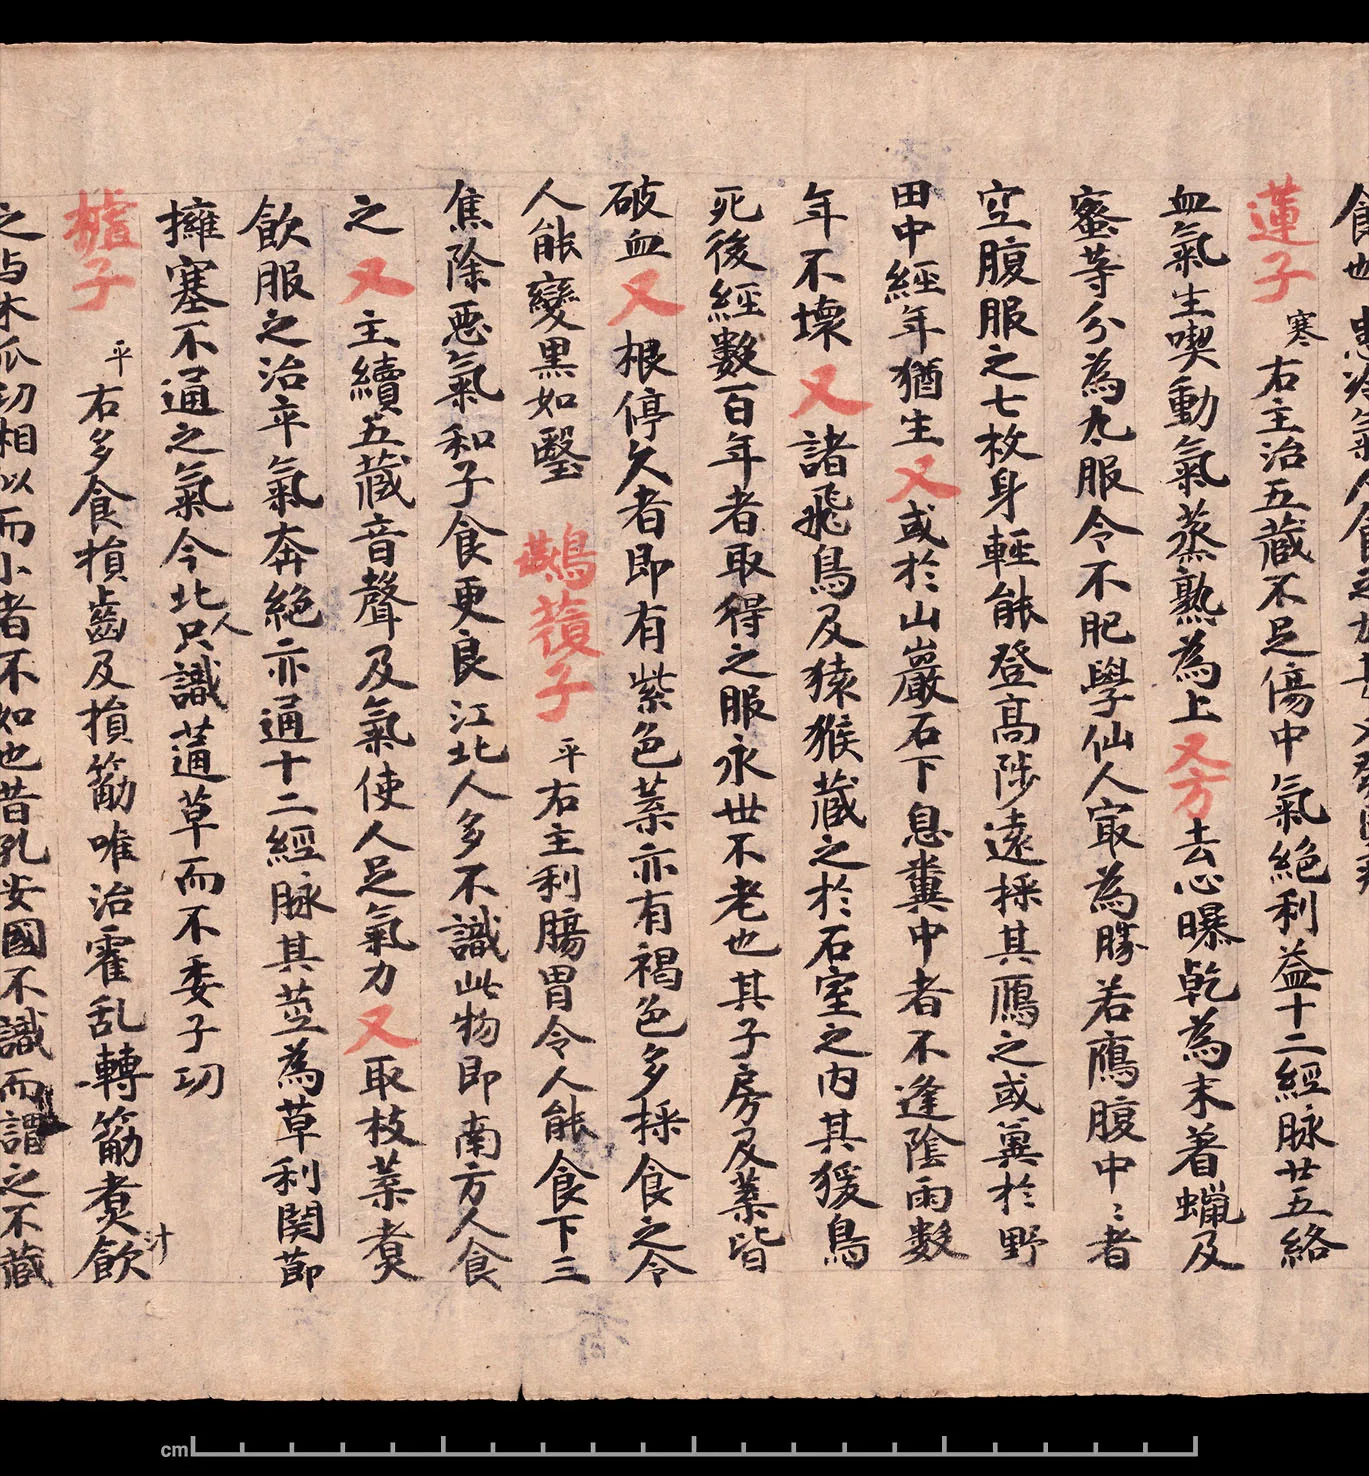 蓮子寒右主治五蔵不足傷中氣絕利益十二經脉廿五絡
血氣生喫動氣蒸熟為上又方去心曝乾為末着蠟及
蜜等分為丸服令不肥學仙人㝡為勝若鴈腹中〻者
空腹服之七枚身輕能登高陟遠採其鴈之或糞於野
田中經年猶生又或於山巖石下息糞中者不逢陰雨數
年不壞又諸飛鳥及猿猴蔵之於石室之内其猨鳥
死後經數百年者取得之服永世不老也其子房及葉皆
破血又根停久者即有紫色葉亦有褐色多採食之令
人能變黑如瑿 鷰蕧子平右主利腸胃令人能食下三
焦除惡氣和子食更良江北人多不識此物即南方人食
之又主續五蔵音聲及氣使人足氣力又取枝葉煮
飲服之治卒氣奔絕亦通十二經脉其莖為草利関莭
擁塞不通之氣今北人只識蓪草而不委子切
樝子平右多食損齒及損筋唯治霍乱轉筋煮飲汁
之与木瓜切相似而小者不如也昔孔安國不識而謂之不蔵
cm